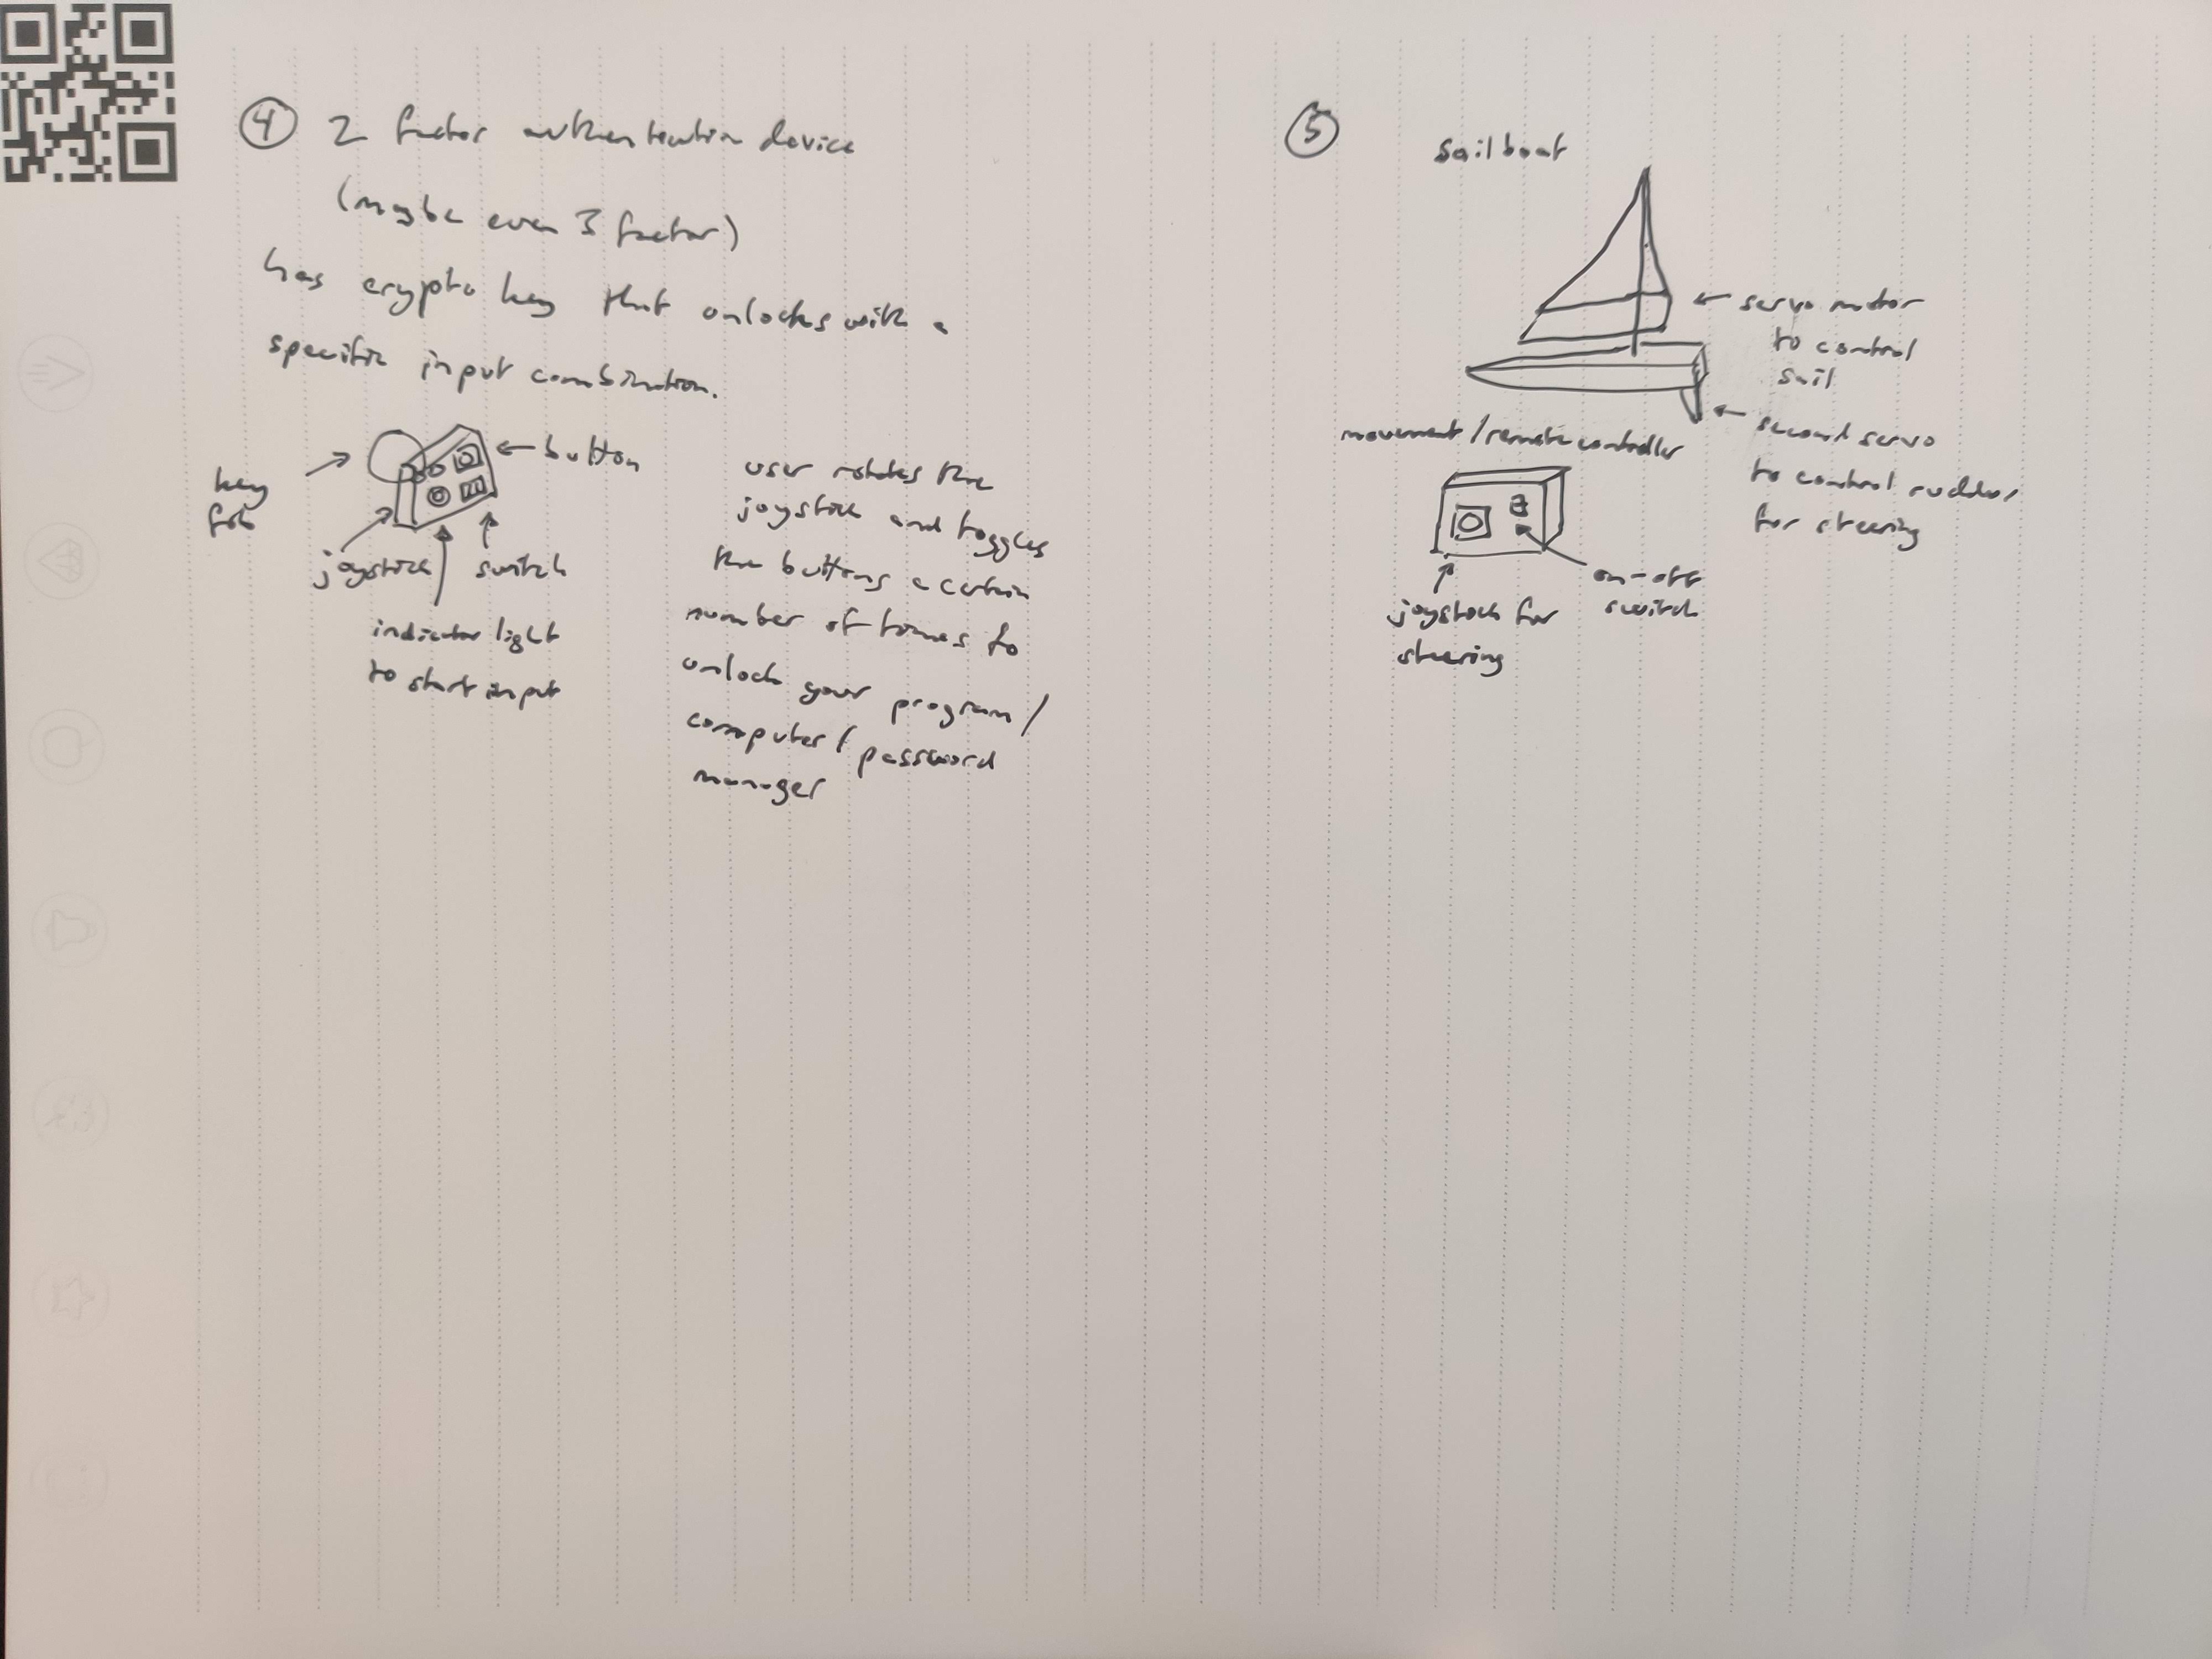 4
2 factor authentication device
(maybe even 3 factor)
has crypto key that unlocks with a
specific input combination.
key
fob
button
joystick
switch
indicator light
to start input
user rotates the
joystick and toggles
the buttons a certain
number of times to
unlock your program/
computer/password
manager
5
sailboat
servo motor
to control
sail
second servo
to control rudder
for steering
movement/remote controller
on-off
switch
joystick for
steering